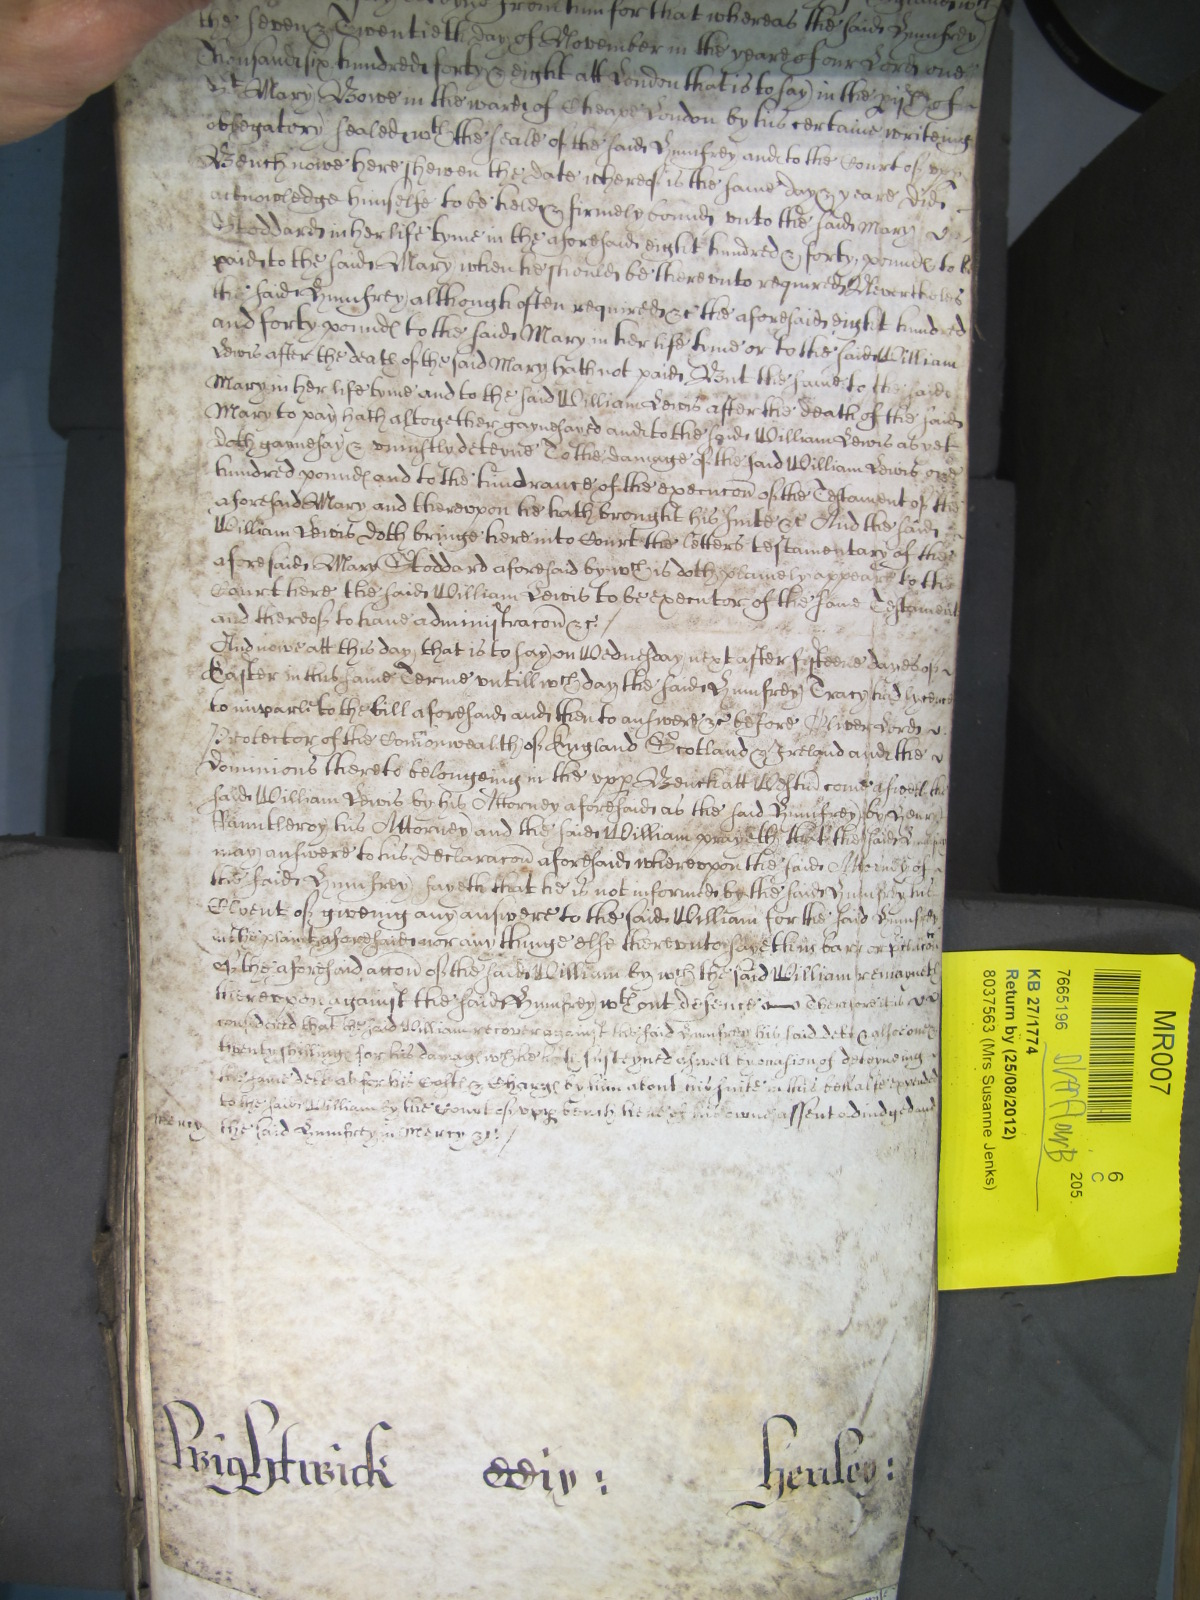 the seven & Twentieth day of November in the yeare of our Lord one
thousand six hundred forty & eight att London that is to say in the pish of
St Mary Bowe in the ward of Cheape London by his certaine writeing
obligatory sealed wth the seale of the said Humfrey and to the Court of upp
Bench nowe here shewen the date whereof is the same day & yeare did
acknowledge himselfe to be held & firmely bound unto the said Mary
Stoddard in her life tyme in the aforesaid eight hundred & forty pounds to be
paid to the said Mary when he should be thereunto required Nevertheles
the said Humfrey although often required &c the aforesaid eight hundred
and forty pounds to the said Mary in her life time or to the said William
Lewis after the death of the said Mary hath not paid But the same to the said
Mary in her life tyme and to the said William Lewis after the death of the said
Mary to pay hath altogether gaynesayed and to the said William Lewis as yet
doth gaynesay & uniustly deteyne To the damage of the said William Lewis one
hundred pounds and to the hindrance of the execucon of the Testament of the
aforesaid Mary and thereupon he hath brought his suite &c And the said
William Lewis doth bringe here into Court the letters testamentary of the
aforesaid Mary Stoddard aforesaid by wch is doth playnely appeare to the
Court here the said William Lewis to be executor of the same Testament
and thereof to have administracon &c
And nowe att this day that is to say on Wednesday next after fifteene dayes of
Easter in this same Terme untill wch day the said Humfrey Tracy had lycence
to imparle to the bill aforesaid and then to answere &c before Oliver Lord
Protector of the Comonwealth of England Scotland & Ireland and the
dominions thereto belongeing in the upp Bench att Westm come aswell the
said William Lewis by his Attorney aforesaid as the said Humfrey by Henry
Fauntleroy his Attorney and the said William prayeth that the said
may answere to his declaracon aforesaid whereupon the said Attorney of
the said Humfrey sayeth that he is not informed by the said Humfrey his
Clyent of giveing any answere to the said William for the said Humfrey
in the plaint aforesaid nor any thinge else thereunto sayeth in barr or
of the aforesaid accon of the said William by wch the said William remayneth
thereupon against the said Humfrey wthout defence Therefore it is
considered that the said William recover against the said Humfrey his said debt & alsoe one &
twenty shillings for his damage wch he hath susteyned aswell by occasion of deteyneing
the same debt as for his Costs & Charges by him about his suite in this behalfe expended
to the said William by the Court of upp bench here of his owne assent adiudged and
mercy the said Humfrey in Mercy &c
Wightwick
Henley:
MR007
6
C
205.
7665196
KB 27/1774
Return by (25/08/2012)
8037563 (Mrs Susanne Jenks)